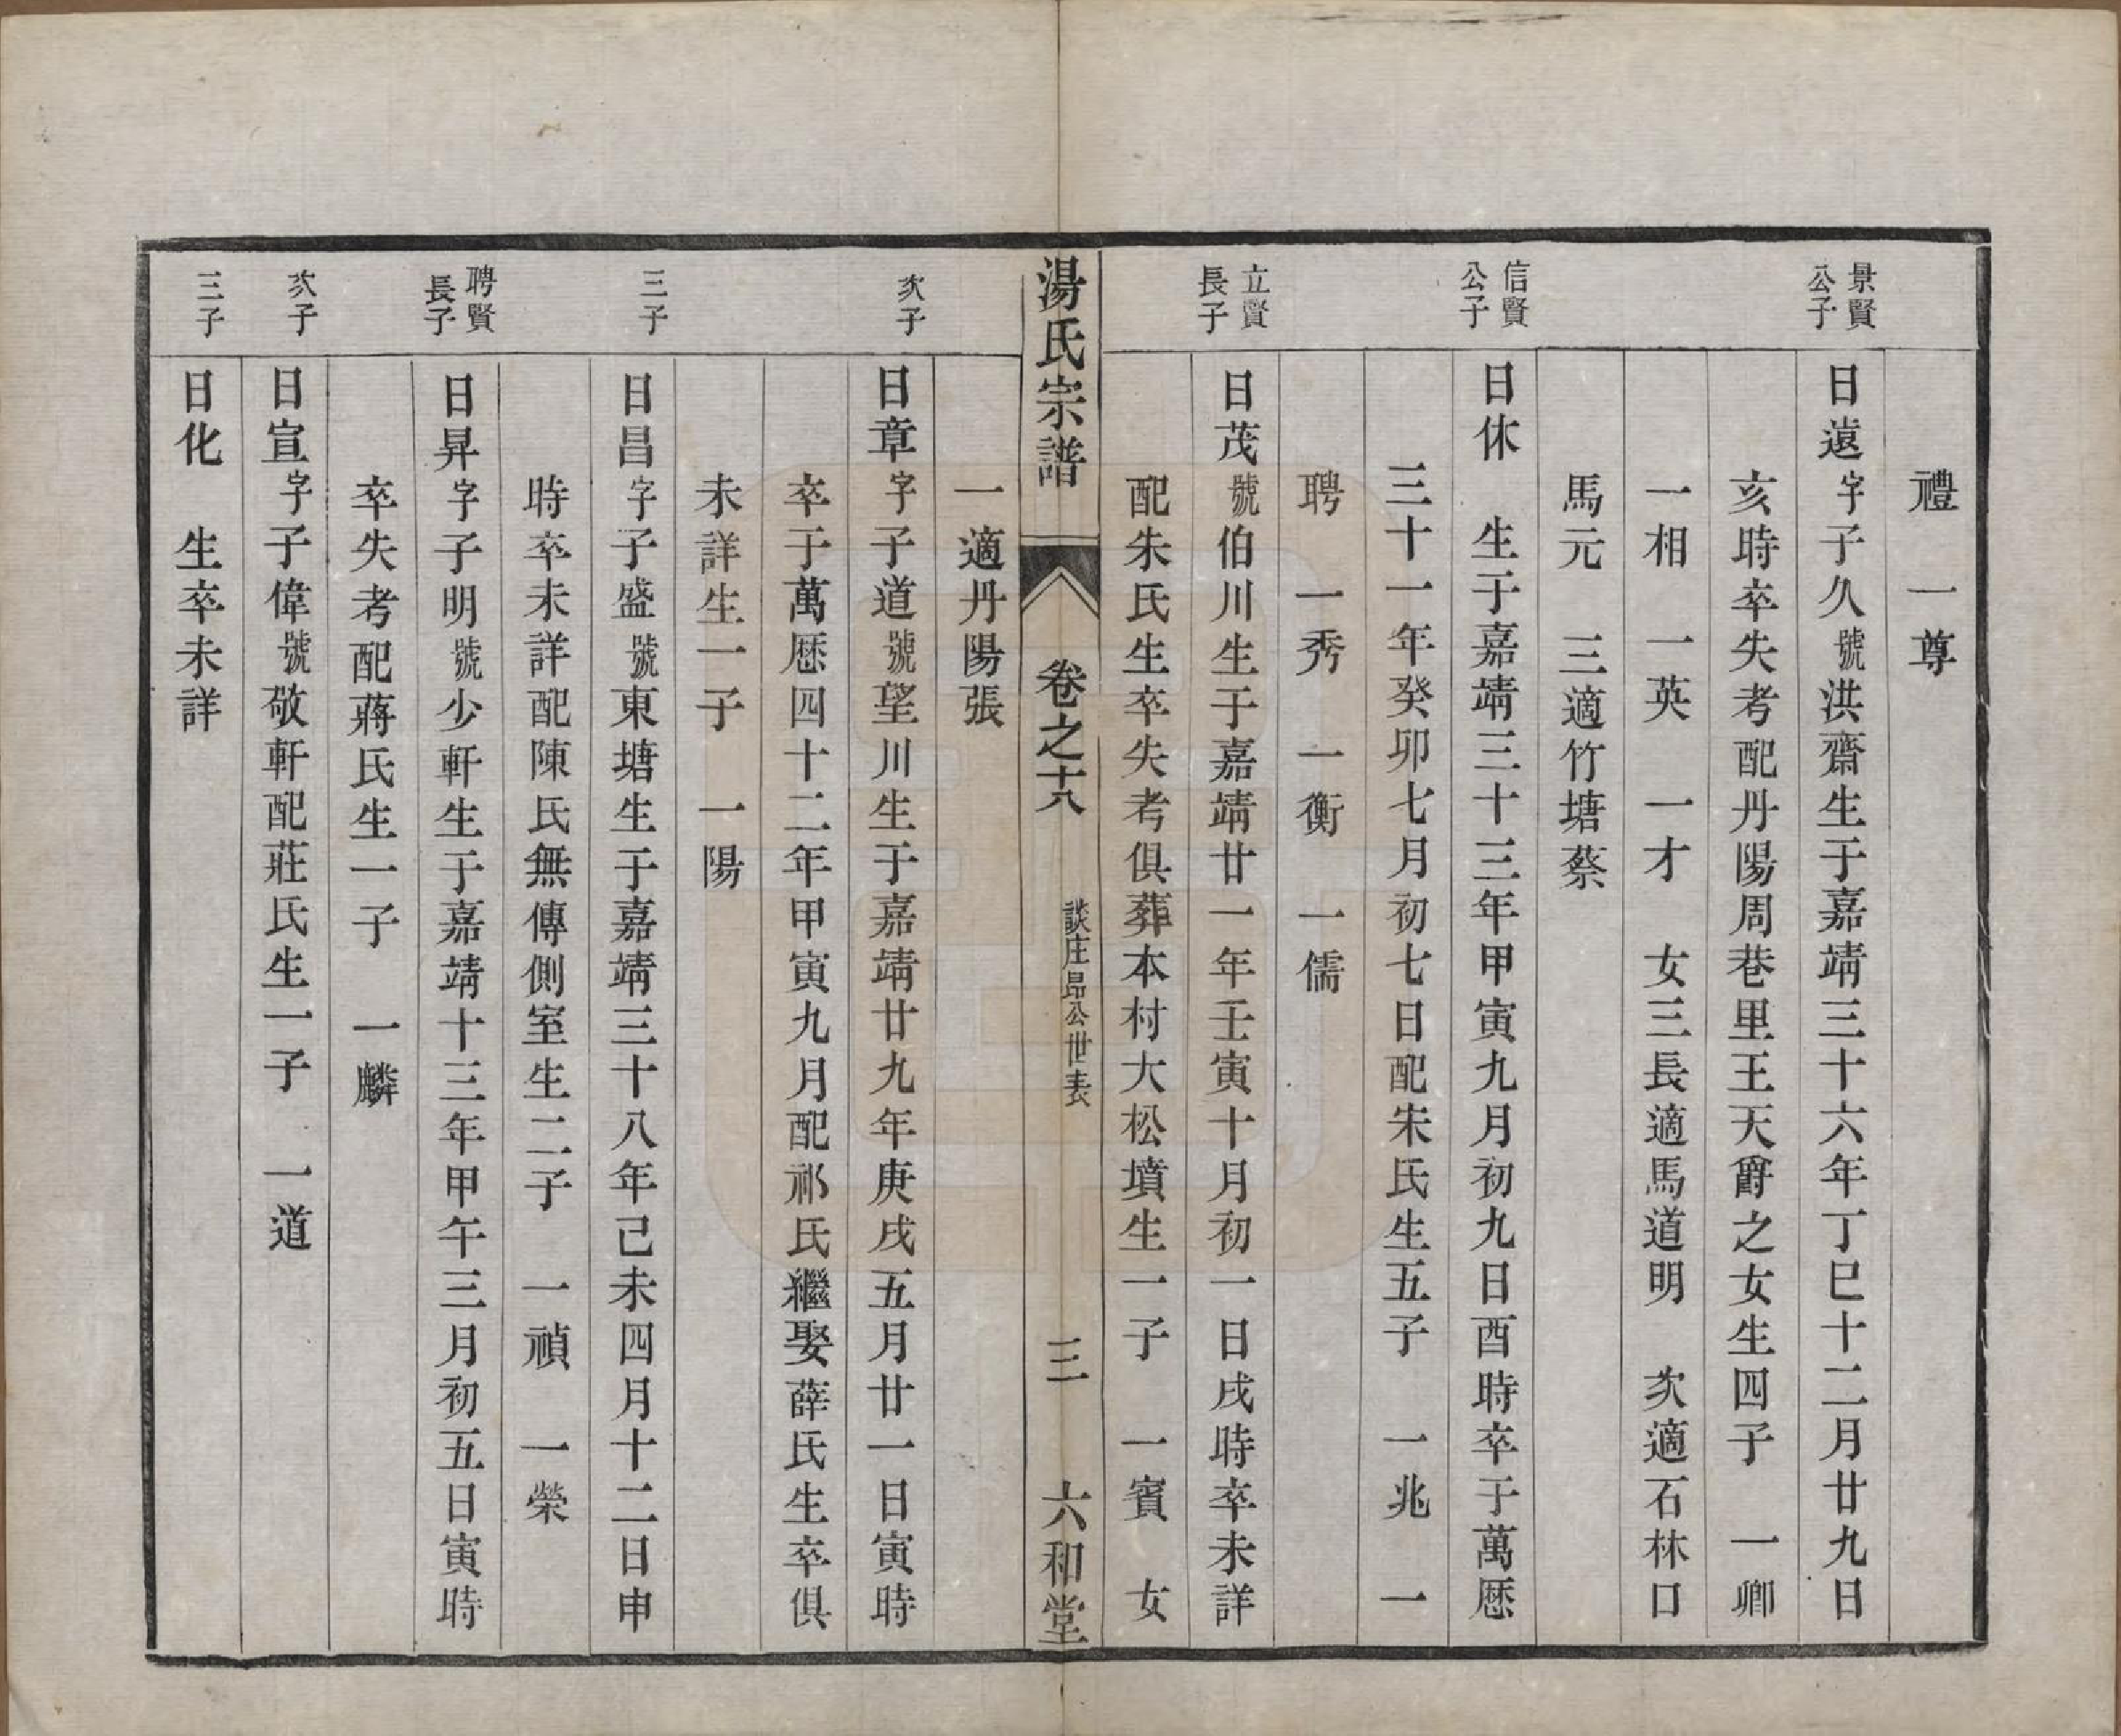 禮　一尊
景賢公子
日遠字子久號洪齋生于嘉靖三十六年丁巳十二月廿九日
亥時卒失考配丹陽周巷里王天爵之女生四子　一卿
一相　一英　一才　女三長適馬道明　次適石林口
馬元　三適竹塘蔡
信賢公子
日休　生于嘉靖三十三年甲寅九月初九日酉時卒于萬厯
三十一年癸卯七月初七日配朱氏生五子　一兆　一
聘　一秀　一衡　一儒
立賢長子
日茂號伯川生于嘉靖廿一年壬寅十月初一日戌時卒未詳
配朱氏生卒失考俱葬本村大松墳生一子　一賓　女
湯氏宗譜　卷之十八　談庄昂公世表　三　六和堂
一適丹陽張
次子
日章字子道號望川生于嘉靖廿九年庚戌五月廿一日寅時
卒于萬厯四十二年甲寅九月配祁氏繼娶薛氏生卒俱
未詳生一子　一陽
三子
日昌字子盛號東塘生于嘉靖三十八年己未四月十二日申
時卒未詳配陳氏無傳側室生二子　一禎　一榮
聘賢長子
日昇字子明號少軒生于嘉靖十三年甲午三月初五日寅時
卒失考配蔣氏生一子　一麟
次子
日宣字子偉號敬軒配莊氏生一子　一道
三子
日化　生卒未詳